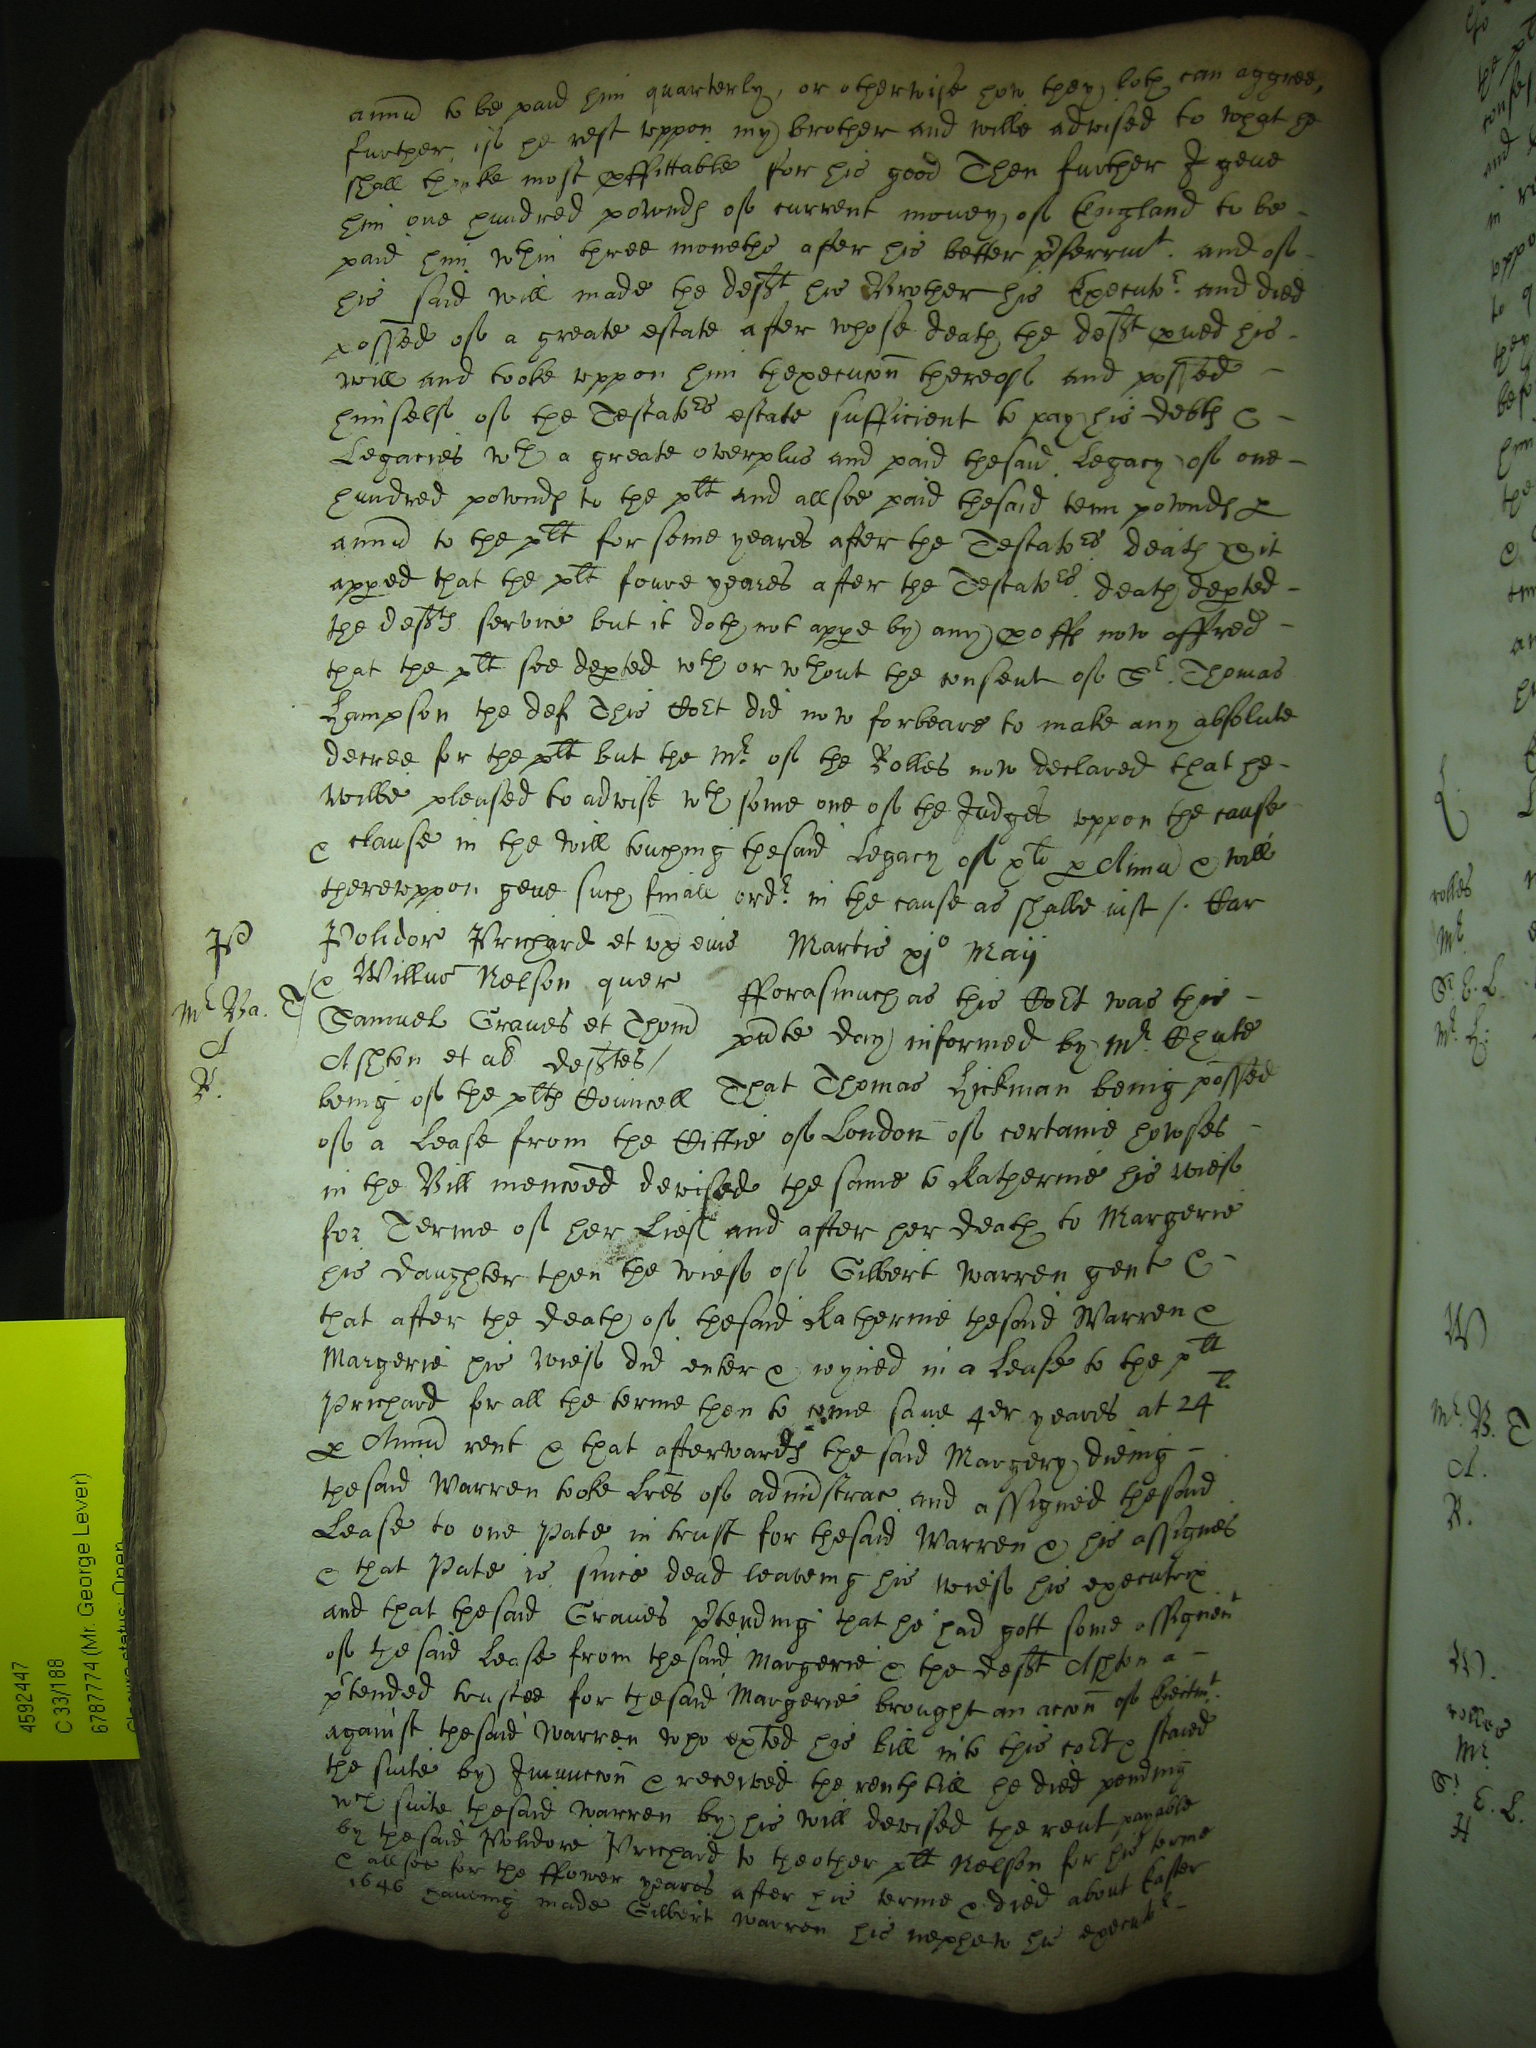 annū to be paid him quarterly, or otherwise how they both can aggree,
further, if he rest uppon my brother and wilbe advised to what he
shall thinke most pffittable for his good Then further I geue
him one hundred pownds of current money of England to be -
paid him wthin three moneths after his better pferrmt. and of -
his said will made the deft his Brother his Executor. and died
possed of a greate estate after whose death the deft pued his -
will and tooke uppon him thexecucon thereof and possed -
himself of the Testators estate sufficient to pay his debts & -
Legacies wth a greate overplus and paid thesaid Legacy of one -
hundred pownds to the plt and allsoe paid thesaid tenn pownds p
annū to the plt for some yeares after the Testators death & it
apped that the plt foure yeares after the Testators death depted -
the defts service but it doth not appe by any pofe now offred -
that the plt soe depted wth or wthout the consent of Sr. Thomas
Hampson the def This Cort did now forbeare to make any absolute
decree for the plt but the Mr. of the Rolles now declared that he -
wilbe pleased to advise wth some one of the Judges uppon the cause
& clause in the will touching thesaid Legacy of xli p Annū & will
thereuppon geue such finall ordr. in the cause as shalbe iust /. Car
JP
Polidor Prichard et ux eius Martis xjo Maij
& Willus Nelson quer fforasmuch as this Cort was this -
Mr Ba. T
Samuel Graues et Thom pnte day informed by Mr. Chute
A
Ashton et al deftes /
R.
being of the plts Councell That Thomas Hickman being possed
of a Lease from the Cittie of London of certaine howses -
in the Bill mencoed devised the same to Katherine his wief
for Terme of her Lief and after her death to Margerie
his daughter then the wief of Gilbert Warren gent & -
that after the death of thesaid Katherine thesaid Warren &
Margerie his wief did enter & ioyned in a Lease to the plt
Prichard for all the terme then to come saue 4er yeares at 24li
p Annū rent & that afterwards the said Margery dieing -
thesaid Warren tooke Lres of adminstrac and assigned thesaid
Lease to one Pate in trust for thesaid Warren & his assignes
& that Pate is since dead leaveing his wief his executrix
and that thesaid Graues ptending that he had gott some assignent
of thesaid Lease from thesaid Margerie & the deft Ashton a -
ptended trustee for thesaid Margerie brought an accon of Eiectmt.
against thesaid Warren who exted his bill into this cort & staied
the suite by Iniunccon & received the rents till he died pending
wch suite thesaid Warren by his will devised the rent payable
by thesaid Polidore Prichard to theother plt Nelson for his terme
& allsoe for the ffower yeares after his terme & died about Easter
1646 haueing made Gilbert Warren his nephew his executr -
4592447
C 33/188
6787774 (Mr. George Lever)
Closure status: Open
rolles
Mr.
Sr. E. L.
Mr. H:
W
Mr. B. T
A.
R.
W.
rolles
Mr.
Sr E. L.
H